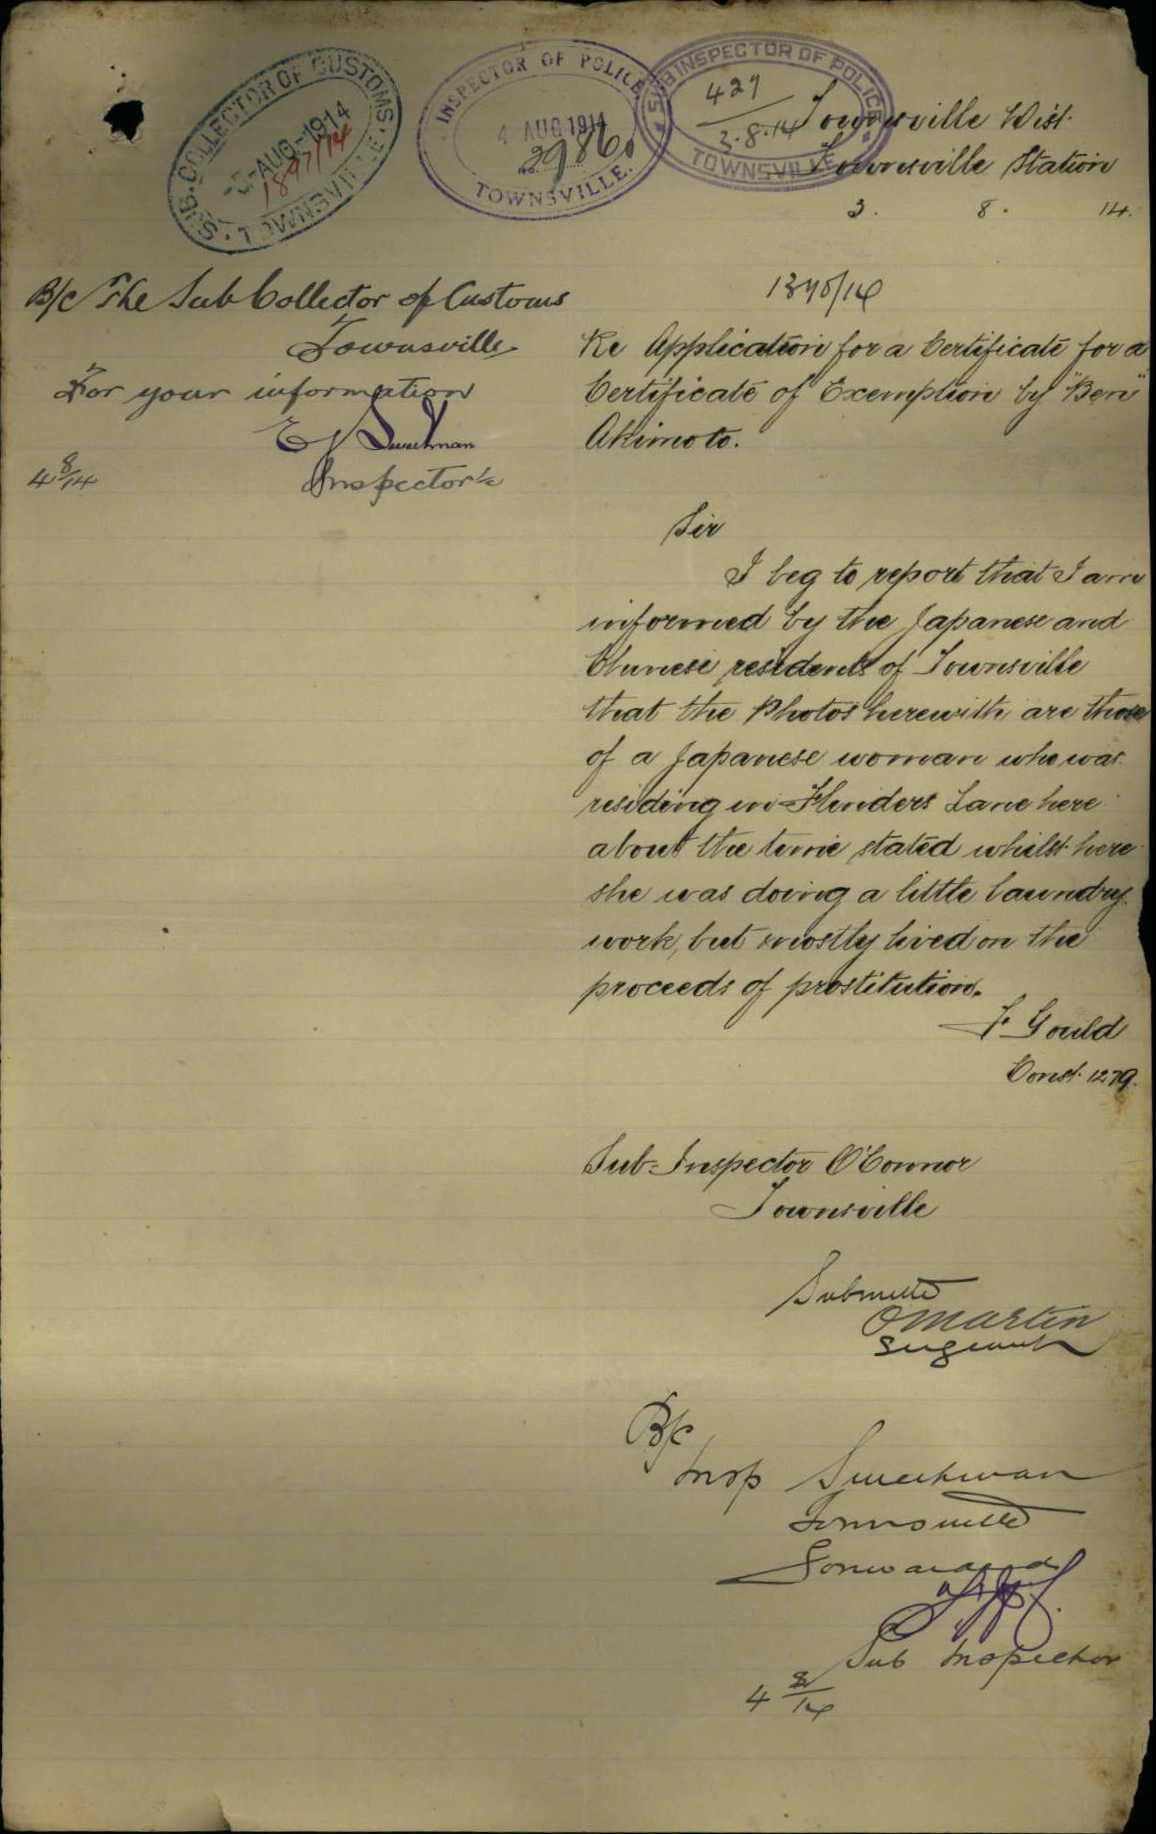 SUB-COLLECTOR OF CUSTOMS.
-AUG-1914
1897/14
TOWNSVILLE
INSPECTOR OF POLICE
4 AUG 1914
No. 2986
TOWNSVILLE.
SUB INSPECTOR OF POLICE
427
3.8.14
TOWNSVILLE
Townsville Dist.
Townsville Station
3. 8. 14.
B/c The Sub Collector of Customs
Townsville
For your information
Sweetman
Inspector
4 8/14
1378/14
Re Application for a Certificate for a
Certificate of Exemption by "Ben"
Akimoto.
Sir
I beg to report that I am
informed by the Japanese and
Chinese residents of Townsville
that the Photos herewith are those
of a Japanese woman who was
residing in Flinders Lane here
about the time stated whilst here
she was doing a little laundry
work, but mostly lived on the
proceeds of prostitution.
F. Gould
Const. 1279.
Sub-Inspector O'Connor
Townsville
Submitted
O Martin
Sergeant
B/c
Insp Sweetman
Townsville
Forwarded
Sub Inspector
4 8/14